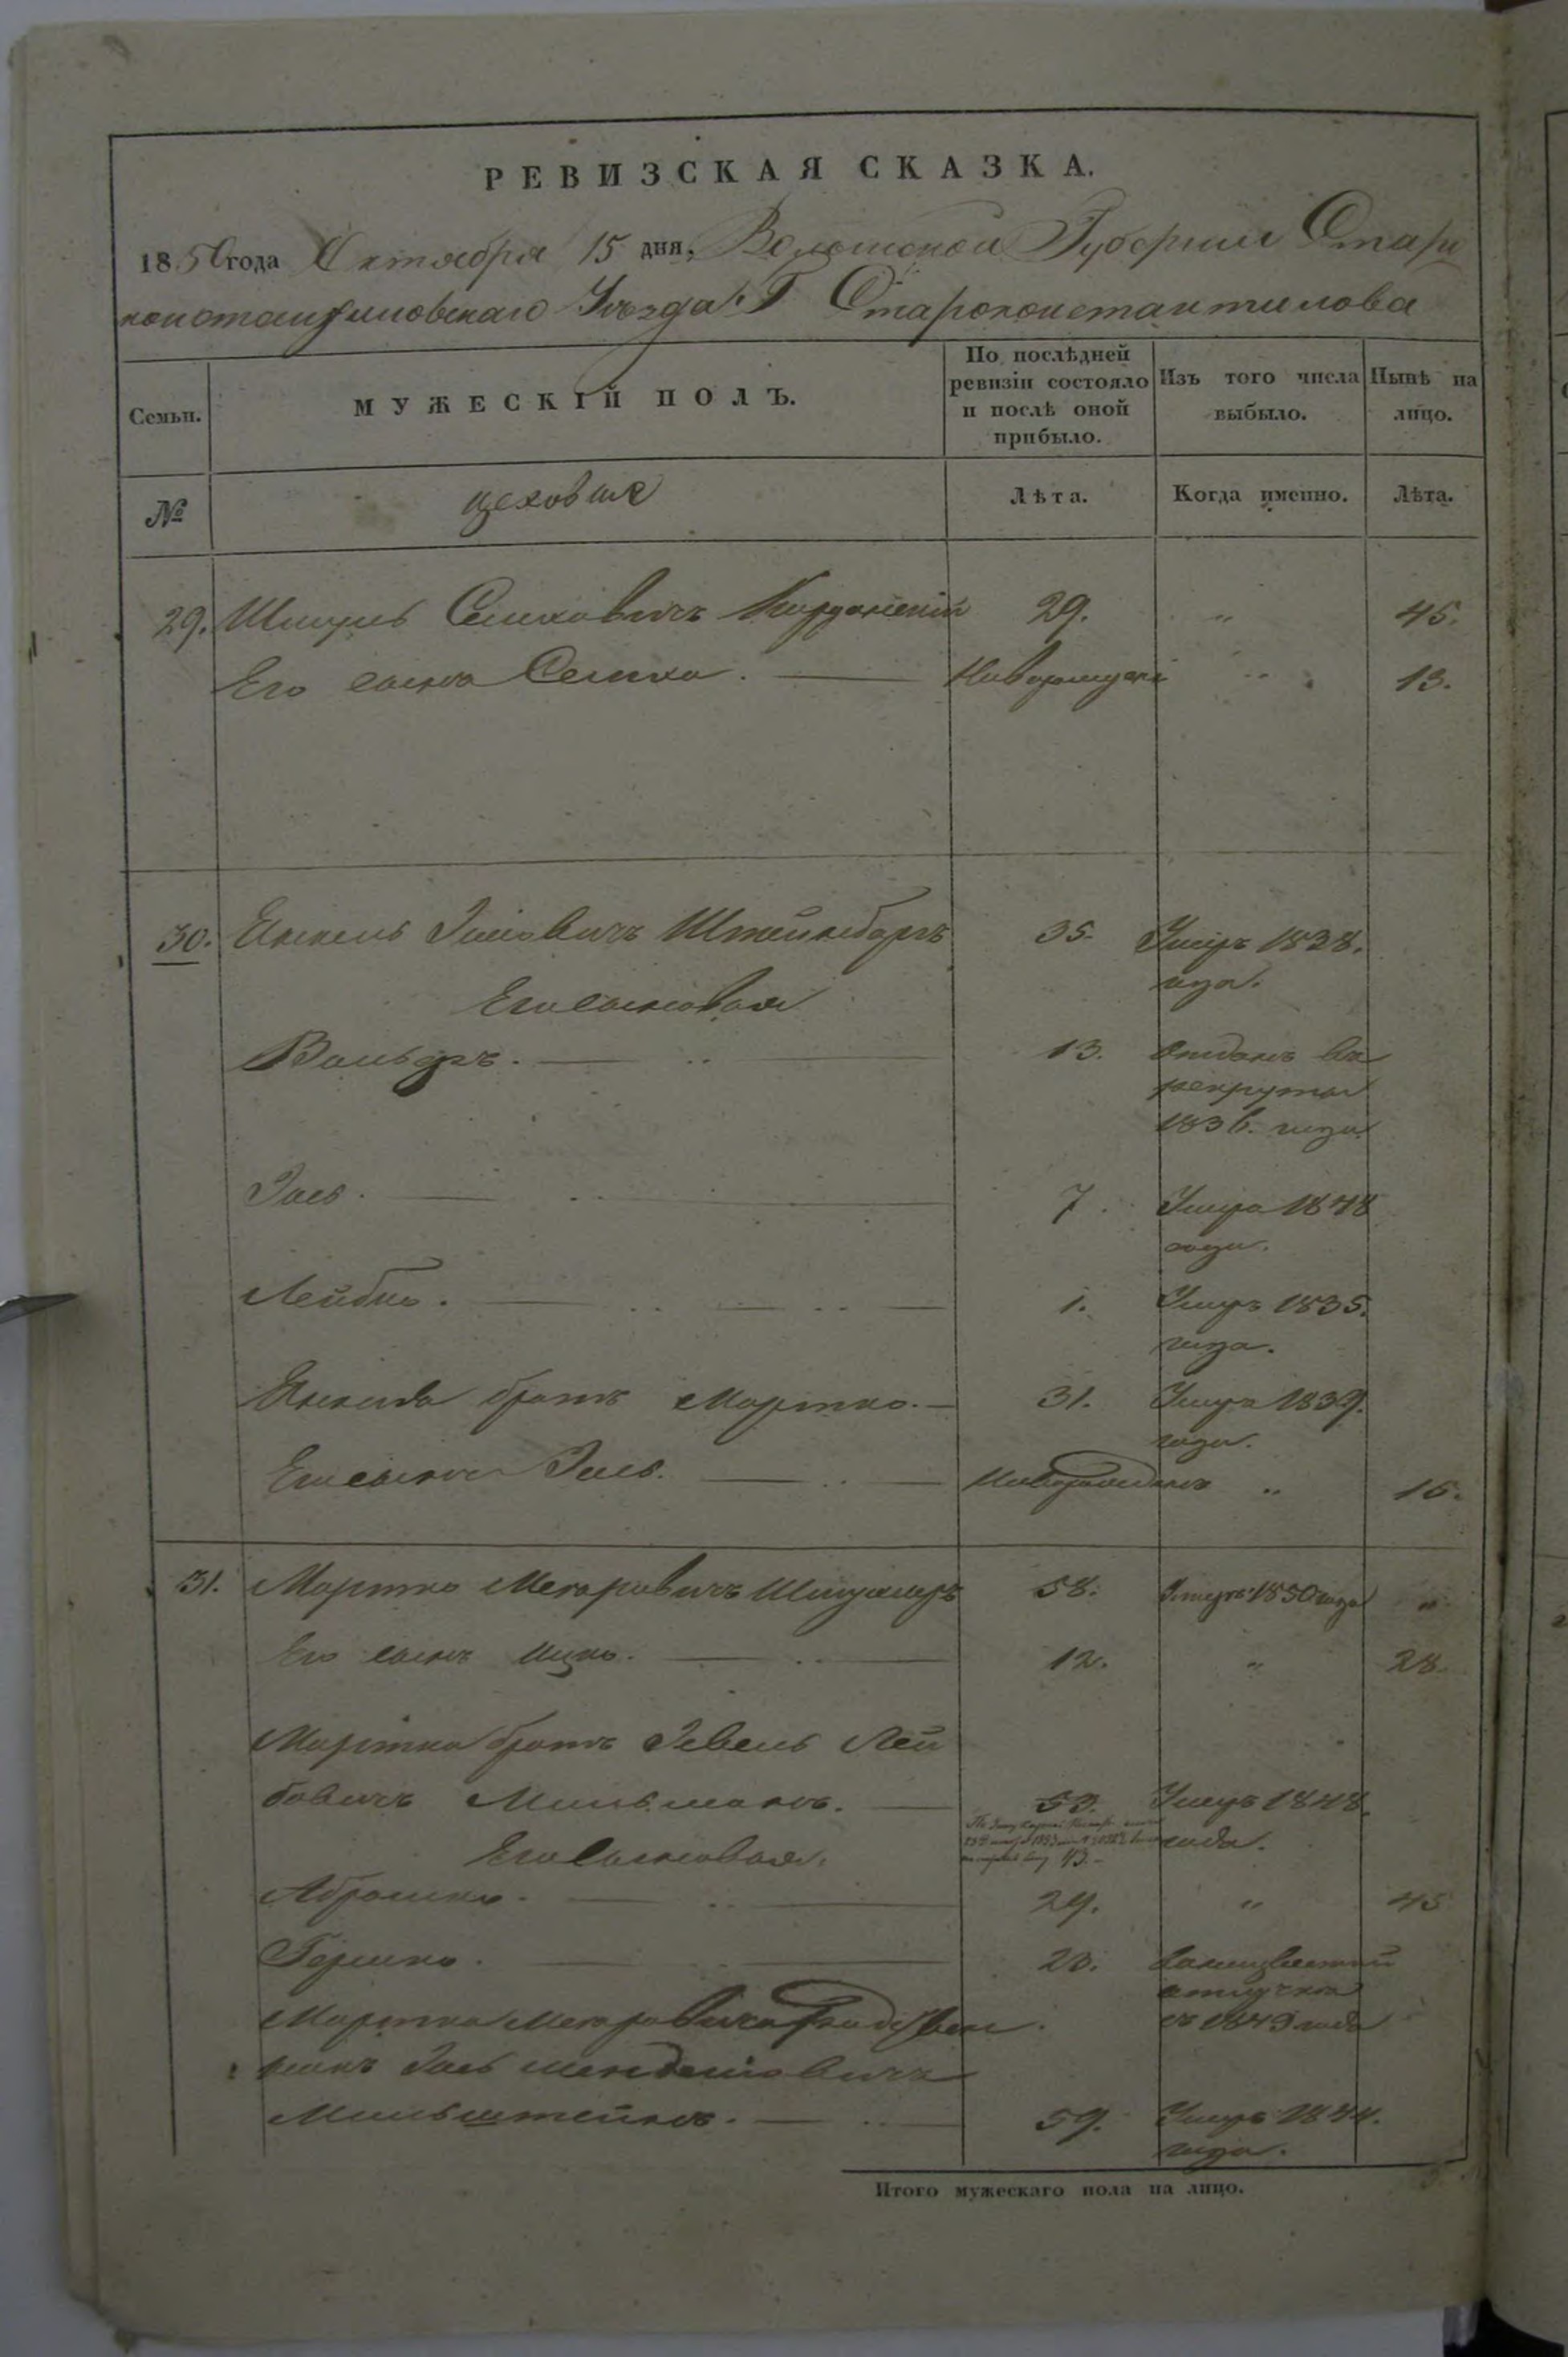 РЕВИЗСКАЯ СКАЗКА.
1850 года Октября 15 дня, Волынской Губернии Старо
константиновскаго Уѣзда Г Староконстантинова
Семьи.
МУЖЕСКІЙ ПОЛЪ.
По послѣдней ревизіи состояло и послѣ оной прибыло.
Изъ того числа выбыло.
Нынѣ на лицо.
№
цеховые
Лѣта.
Когда именно.
Лѣта.
29. Шмуль Семховичъ 29. „ 45.
Его сынъ Семха. — „ 13.
30. Янкель Іосіовичъ Штейнбергъ 35. Умеръ 1838.
года.
Его сыновья
Вольфъ. — 13. Отданъ въ
рекруты
1836. года
Іось. — 7. Умеръ 1848
года.
Лейбко. — 1. Умеръ 1835.
года.
Янкеля братъ Мортко. — 31. Умеръ 1839.
года.
Его сынъ Іось. — Новорожденъ „ 16.
31. Мортко 58. Умеръ 1850 года „
Его сынъ Ицко. — 12. „ 28.
Мортка братъ Лей
бовичъ — 53. Умеръ 1848.
года.
43.
Его сыновья.
Абрамко. — 29. „ 45
Гершко. — 23. въ безъизвѣстной
отлучкѣ
съ 1849 года
Мортка
Іось Менделіовичъ
Мильштейнъ. — 59. Умеръ 1844.
года.
Итого мужескаго пола на лицо.